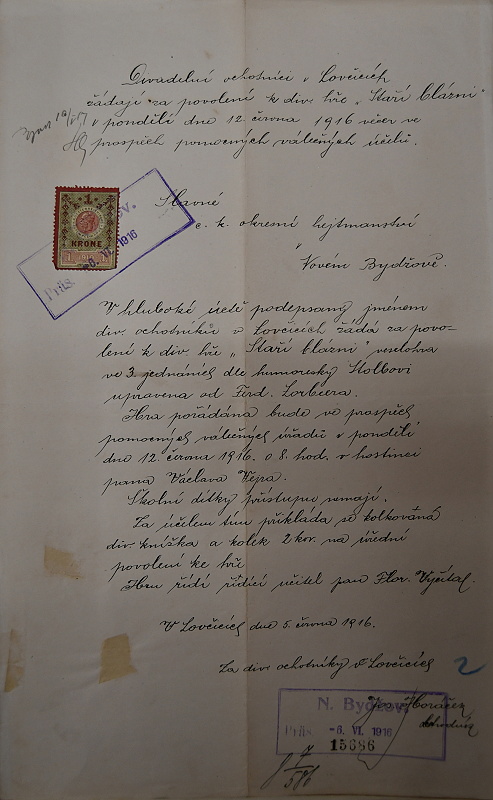 Divadelní ochotníci v Lovčicích
žádají za povolení k div. hře „Staří blázni"
v pondělí dne 12. června 1916 večer ve
prospěch pomocných válečných účelů.
Slavné
c. k. okresní hejtmanství
v
Novém Bydžově.
1
KRONE
Präs. -6. VI. 1916
V hluboké úctě podepsaný jménem
div. ochotníků v Lovčicích žádá za povo-
lení k div. hře „Staří blázni" veselohra
ve 3. jednáních dle humoresky Stolbovi
upravena od Ferd.
Hra pořádána bude ve prospěch
pomocných válečných úřadů v pondělí
dne 12. června 1916. o 8. hod. v hostinci
pana Václava Vejra.
Školní dítky přístupu nemají.
Za účelem tím přikládá se kolkovaná
div. knížka a kolek 2 kor. na úřední
povolení ke hře
Hru řídí řídící učitel pan Flor. Vyčítal.
V Lovčicích dne 5. června 1916.
Za div. ochotníky v Lovčicích
2
Horáček
obchodník
N. Bydžov.
Präs. -6. VI. 1916
15686